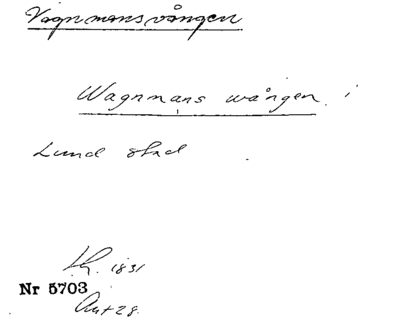 Vagnmansvången
Wagnmans wången i
Lund stad
Kh. 1831
Nr 5703
Akt 28.